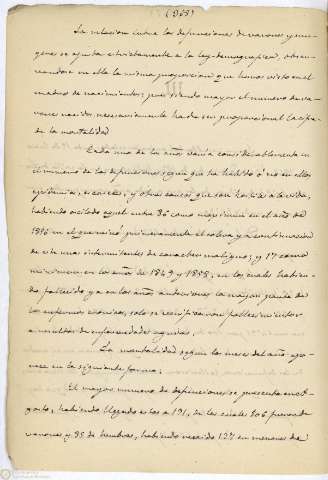 La relacion entre las defunciones de varones y mu-
geres se ajusta estrictamente a la ley demografica, obser-
vandose en ella la misma proporcion que hemos visto en el
cuadro de nacimientos; pues siendo mayor el numero de va-
rones nacidos, necesariamente ha de ser proporcional la cifra
de la mortalidad.
Cada uno de los años varia considerablemente en
el numero de las defunciones segun que ha habido ó no en ellos
epidemias, escaseces, y otras causas que son hostiles a la vida,
habiendo oscilado aquel entre 86 como maximum en el año de
en el que reinó primeramente el colera y a continuacion
de este unas intermitentes de caracter maligno; y 17 como
minimum en los años de 1849 y 1858; en los cuales habien-
do fallecido ya en los años anteriores la mayor parte de
los enfermos cronicos, solo se verificaron fallecimientos
a resultas de enfermedades agudas.
La mortalidad segun los meses del año apa-
rece en la siguiente forma:
El mayor numero de defunciones se presenta en A-
gosto, habiendo llegado estas a 191, de las cuales 106 fueron de
varones y 85 de hembras, habiendo nacido 127 en menores de